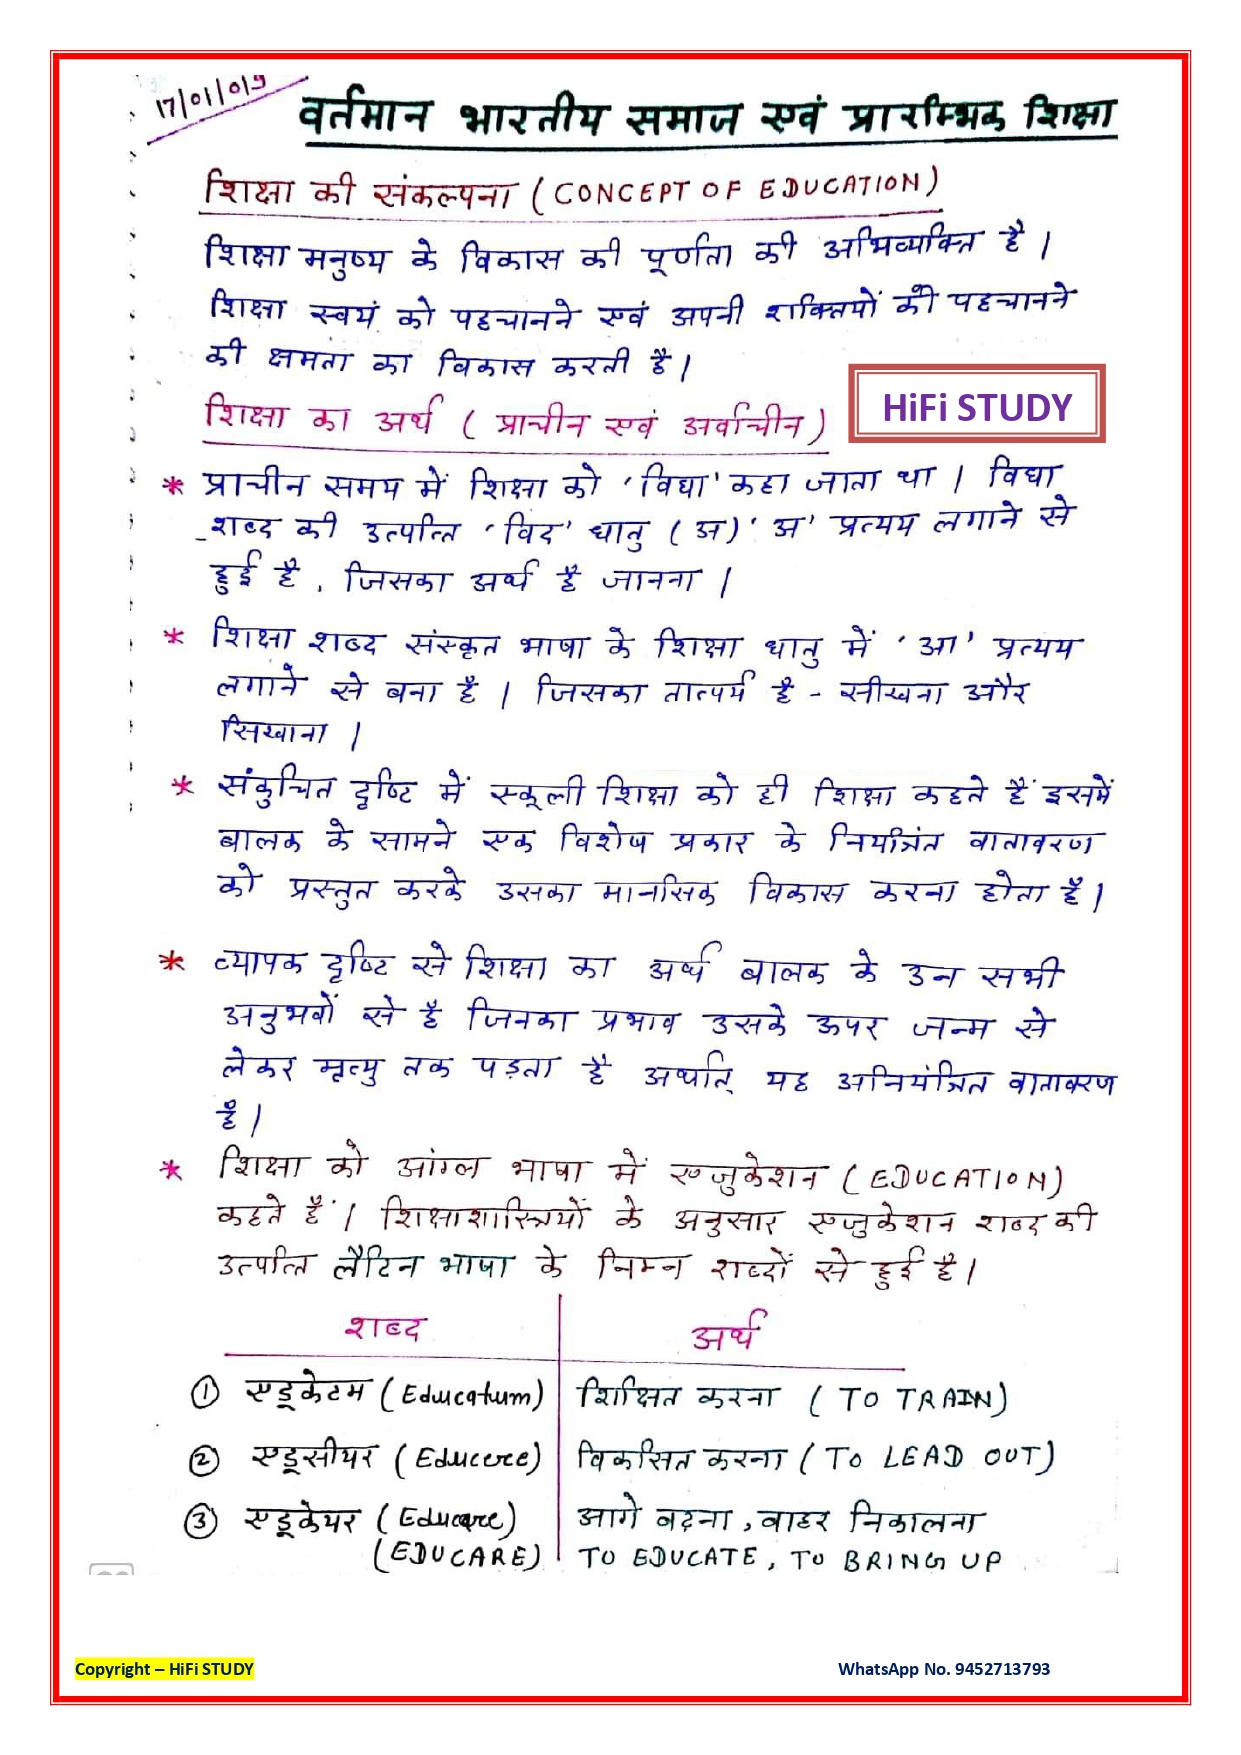 17/01/019
वर्तमान भारतीय समाज एवं प्रारम्भिक शिक्षा
शिक्षा की संकल्पना (CONCEPT OF EDUCATION)
शिक्षा मनुष्य के विकास की पूर्णता की अभिव्यक्ति है।
शिक्षा स्वयं को पहचानने एवं अपनी शक्तियों को पहचानने
की क्षमता का विकास करती है।
HiFi STUDY
शिक्षा का अर्थ ( प्राचीन एवं अर्वाचीन )
* प्राचीन समय में शिक्षा को 'विद्या' कहा जाता था। विद्या
शब्द की उत्पत्ति 'विद' धातु (अ) 'अ' प्रत्यय लगाने से
हुई है, जिसका अर्थ है जानना।
* शिक्षा शब्द संस्कृत भाषा के शिक्षा धातु में 'आ' प्रत्यय
लगाने से बना है। जिसका तात्पर्य है - सीखना और
सिखाना।
* संकुचित दृष्टि में स्कूली शिक्षा को ही शिक्षा कहते हैं इसमें
बालक के सामने एक विशेष प्रकार के नियत्रिंत वातावरण
को प्रस्तुत करके उसका मानसिक विकास करना होता है।
* व्यापक दृष्टि से शिक्षा का अर्थ बालक के उन सभी
अनुभवों से है जिनका प्रभाव उसके ऊपर जन्म से
लेकर मृत्यु तक पड़ता है अर्थात् यह अनियंत्रित वातावरण
है।
* शिक्षा को आंग्ल भाषा में एजुकेशन (EDUCATION)
कहते हैं। शिक्षाशास्त्रियों के अनुसार एजुकेशन शब्द की
उत्पत्ति लैटिन भाषा के निम्न शब्दों से हुई है।
शब्द अर्थ
① एडूकेटम (Educatum) शिक्षित करना (TO TRAIN)
② एडूसीयर (Educere) विकसित करना (TO LEAD OUT)
③ एडूकेयर (Educare) आगे बढ़ना, बाहर निकालना
(EDUCARE) TO EDUCATE, TO BRING UP
Copyright – HiFi STUDY WhatsApp No. 9452713793